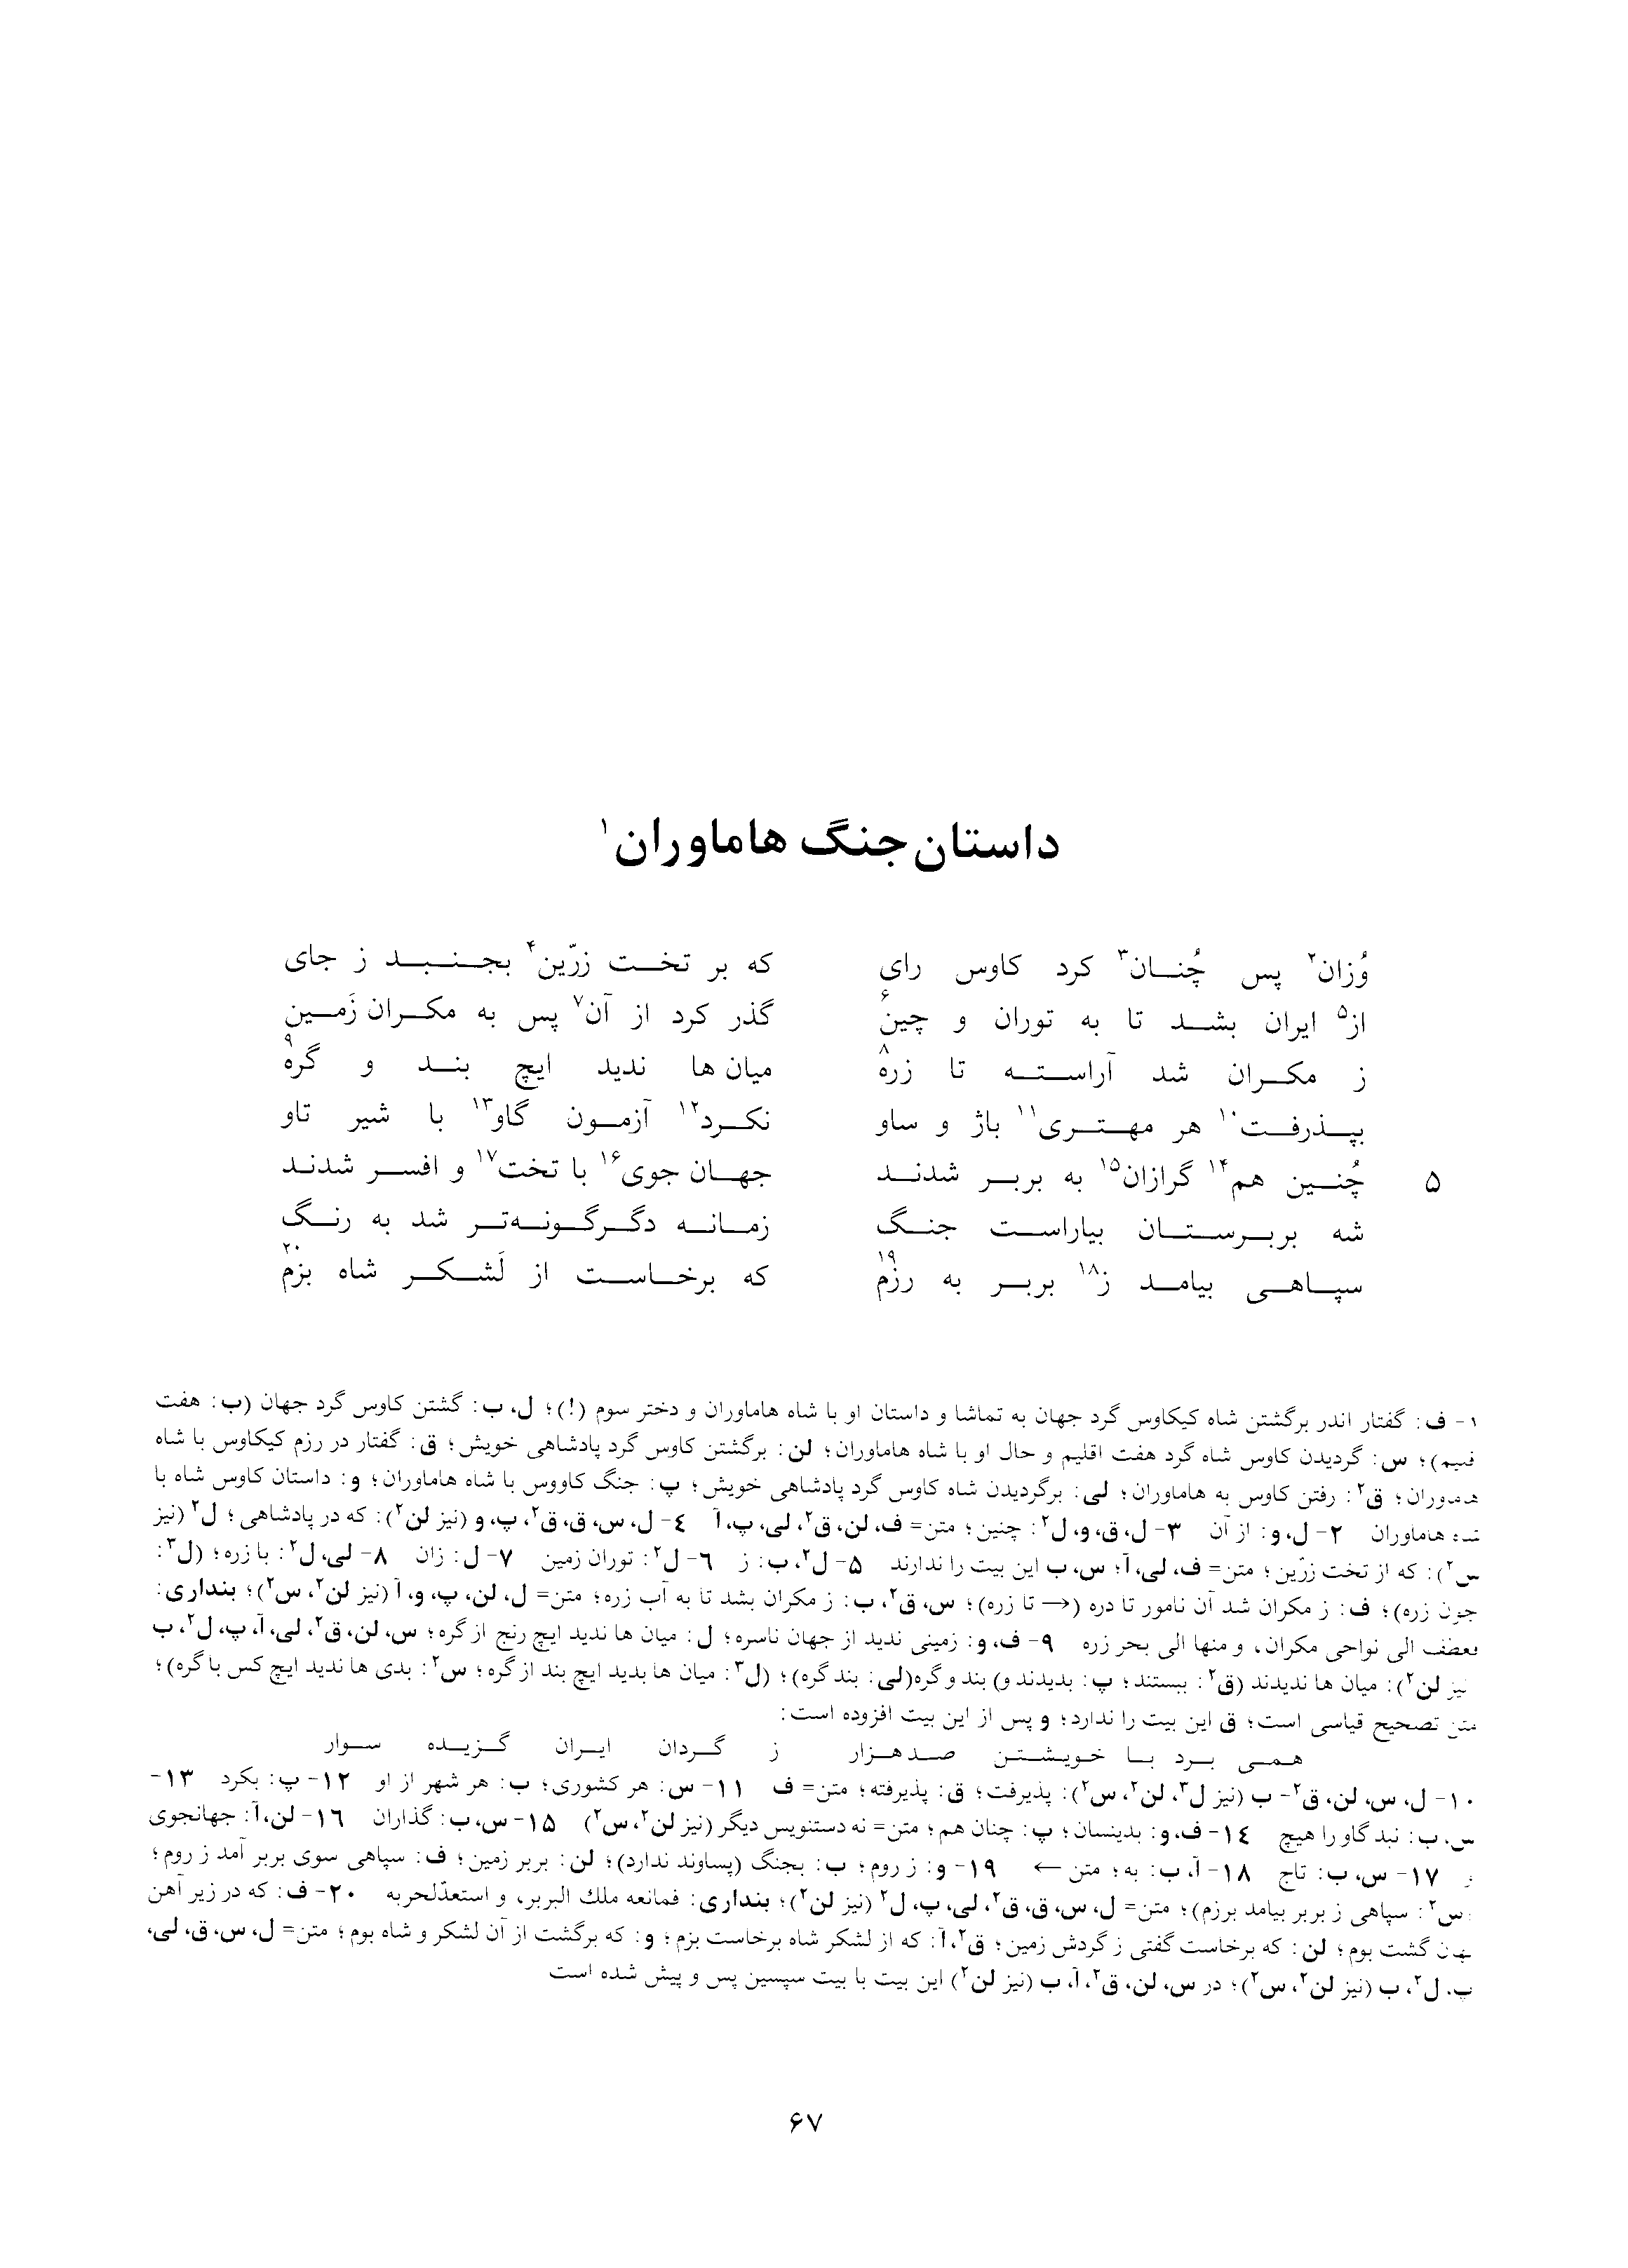 داستان جنگ هاماوران۱
وُزان۲ پس چُنان۳ کرد کاوس رای که بر تخت زرّین۴ بجنبد ز جای
از۵ ایران بشد تا به توران و چین۶ گذر کرد از آن۷ پس به مکران زَمین
ز مکران شد آراسته تا زره۸ میان ها ندید ایچ بند و گره۹
بپذرفت۱۰ هر مهتری۱۱ باژ و ساو نکرد۱۲ آزمون گاو۱۳ با شیر تاو
۵ چُنین هم۱۴ گرازان۱۵ به بربر شدند جهان جوی۱۶ با تخت۱۷ و افسر شدند
شه بربرستان بیاراست جنگ زمانه دگرگونه‌تر شد به رنگ
سپاهی بیامد ز۱۸ بربر به رزم۱۹ که برخاست از لَشکر شاه بزم۲۰
۱- ف: گفتار اندر برگشتن شاه کیکاوس گرد جهان به تماشا و داستان او با شاه هاماوران و دختر سوم (!)؛ ل، ب: گشتن کاوس گرد جهان (ب: هفت
قلیم)؛ س: گردیدن کاوس شاه گرد هفت اقلیم و حال او با شاه هاماوران؛ لن: برگشتن کاوس گرد پادشاهی خویش؛ ق: گفتار در رزم کیکاوس با شاه
هاماوران؛ ق۲: رفتن کاوس به هاماوران؛ لی: برگردیدن شاه کاوس گرد پادشاهی خویش؛ پ: جنگ کاووس با شاه هاماوران؛ و: داستان کاوس شاه با
شاه هاماوران ۲- ل، و: از آن ۳- ل، ق، و، ل۲: چنین؛ متن= ف، لن، ق۲، لی، پ، آ ٤- ل، س، ق، ق۲، پ، و (نیز لن۲): که در پادشاهی؛ ل۲ (نیز
س۲): که از تخت زرّین؛ متن= ف، لی، آ؛ س، ب این بیت را ندارند ۵- ل۲، ب: ز ٦- ل۲: توران زمین ۷- ل: زان ۸- لی، ل۲: با زره؛ (ل۳:
چون زره)؛ ف: ز مکران شد آن نامور تا دره (← تا زره)؛ س، ق۲، ب: ز مکران بشد تا به آب زره؛ متن= ل، لن، پ، و، آ (نیز لن۲، س۲)؛ بنداری:
بعطف الی نواحی مکران، و منها الی بحر زره ۹- ف، و: زمینی ندید از جهان ناسره؛ ل: میان ها ندید ایچ رنج از گره؛ س، لن، ق۲، لی، آ، پ، ل۲، ب
نیز لن۲): میان ها ندیدند (ق۲: ببستند؛ پ: بدیدند و) بند و گره(لی: بند گره)؛ (ل۳: میان ها بدید ایچ بند از گره؛ س۲: بدی ها ندید ایچ کس با گره)؛
متن تصحیح قیاسی است؛ ق این بیت را ندارد؛ و پس از این بیت افزوده است:
همی برد با خویشتن صدهزار ز گردان ایران گزیده سوار
۱۰- ل، س، لن، ق۲- ب (نیز ل۳، لن۲، س۲): پذیرفت؛ ق: پذیرفته؛ متن= ف ۱۱- س: هر کشوری؛ ب: هر شهر از او ۱۲- پ: بکرد ۱۳-
س، ب: نبد گاو را هیچ ۱٤- ف، و: بدینسان؛ پ: چنان هم؛ متن= نه دستنویس دیگر (نیز لن۲، س۲) ۱۵- س، ب: گذاران ۱٦- لن، آ: جهانجوی
ز ۱۷- س، ب: تاج ۱۸- آ، ب: به؛ متن ← ۱۹- و: ز روم؛ ب: بجنگ (پساوند ندارد)؛ لن: بربر زمین؛ ف: سپاهی سوی بربر آمد ز روم؛
س۲: سپاهی ز بربر بیامد برزم)؛ متن= ل، س، ق، ق۲، لی، پ، ل۲ (نیز لن۲)؛ بنداری: فمانعه ملك البربر، و استعدّلحربه ۲۰- ف: که در زیر آهن
نهان گشت بوم؛ لن: که برخاست گفتی ز گردش زمین؛ ق۲، آ: که از لشکر شاه برخاست بزم؛ و: که برگشت از آن لشکر و شاه بوم؛ متن= ل، س، ق، لی،
پ، ل۲، ب (نیز لن۲، س۲)؛ در س، لن، ق۲، آ، ب (نیز لن۲) این بیت با بیت سپسین پس و پیش شده است
۶۷